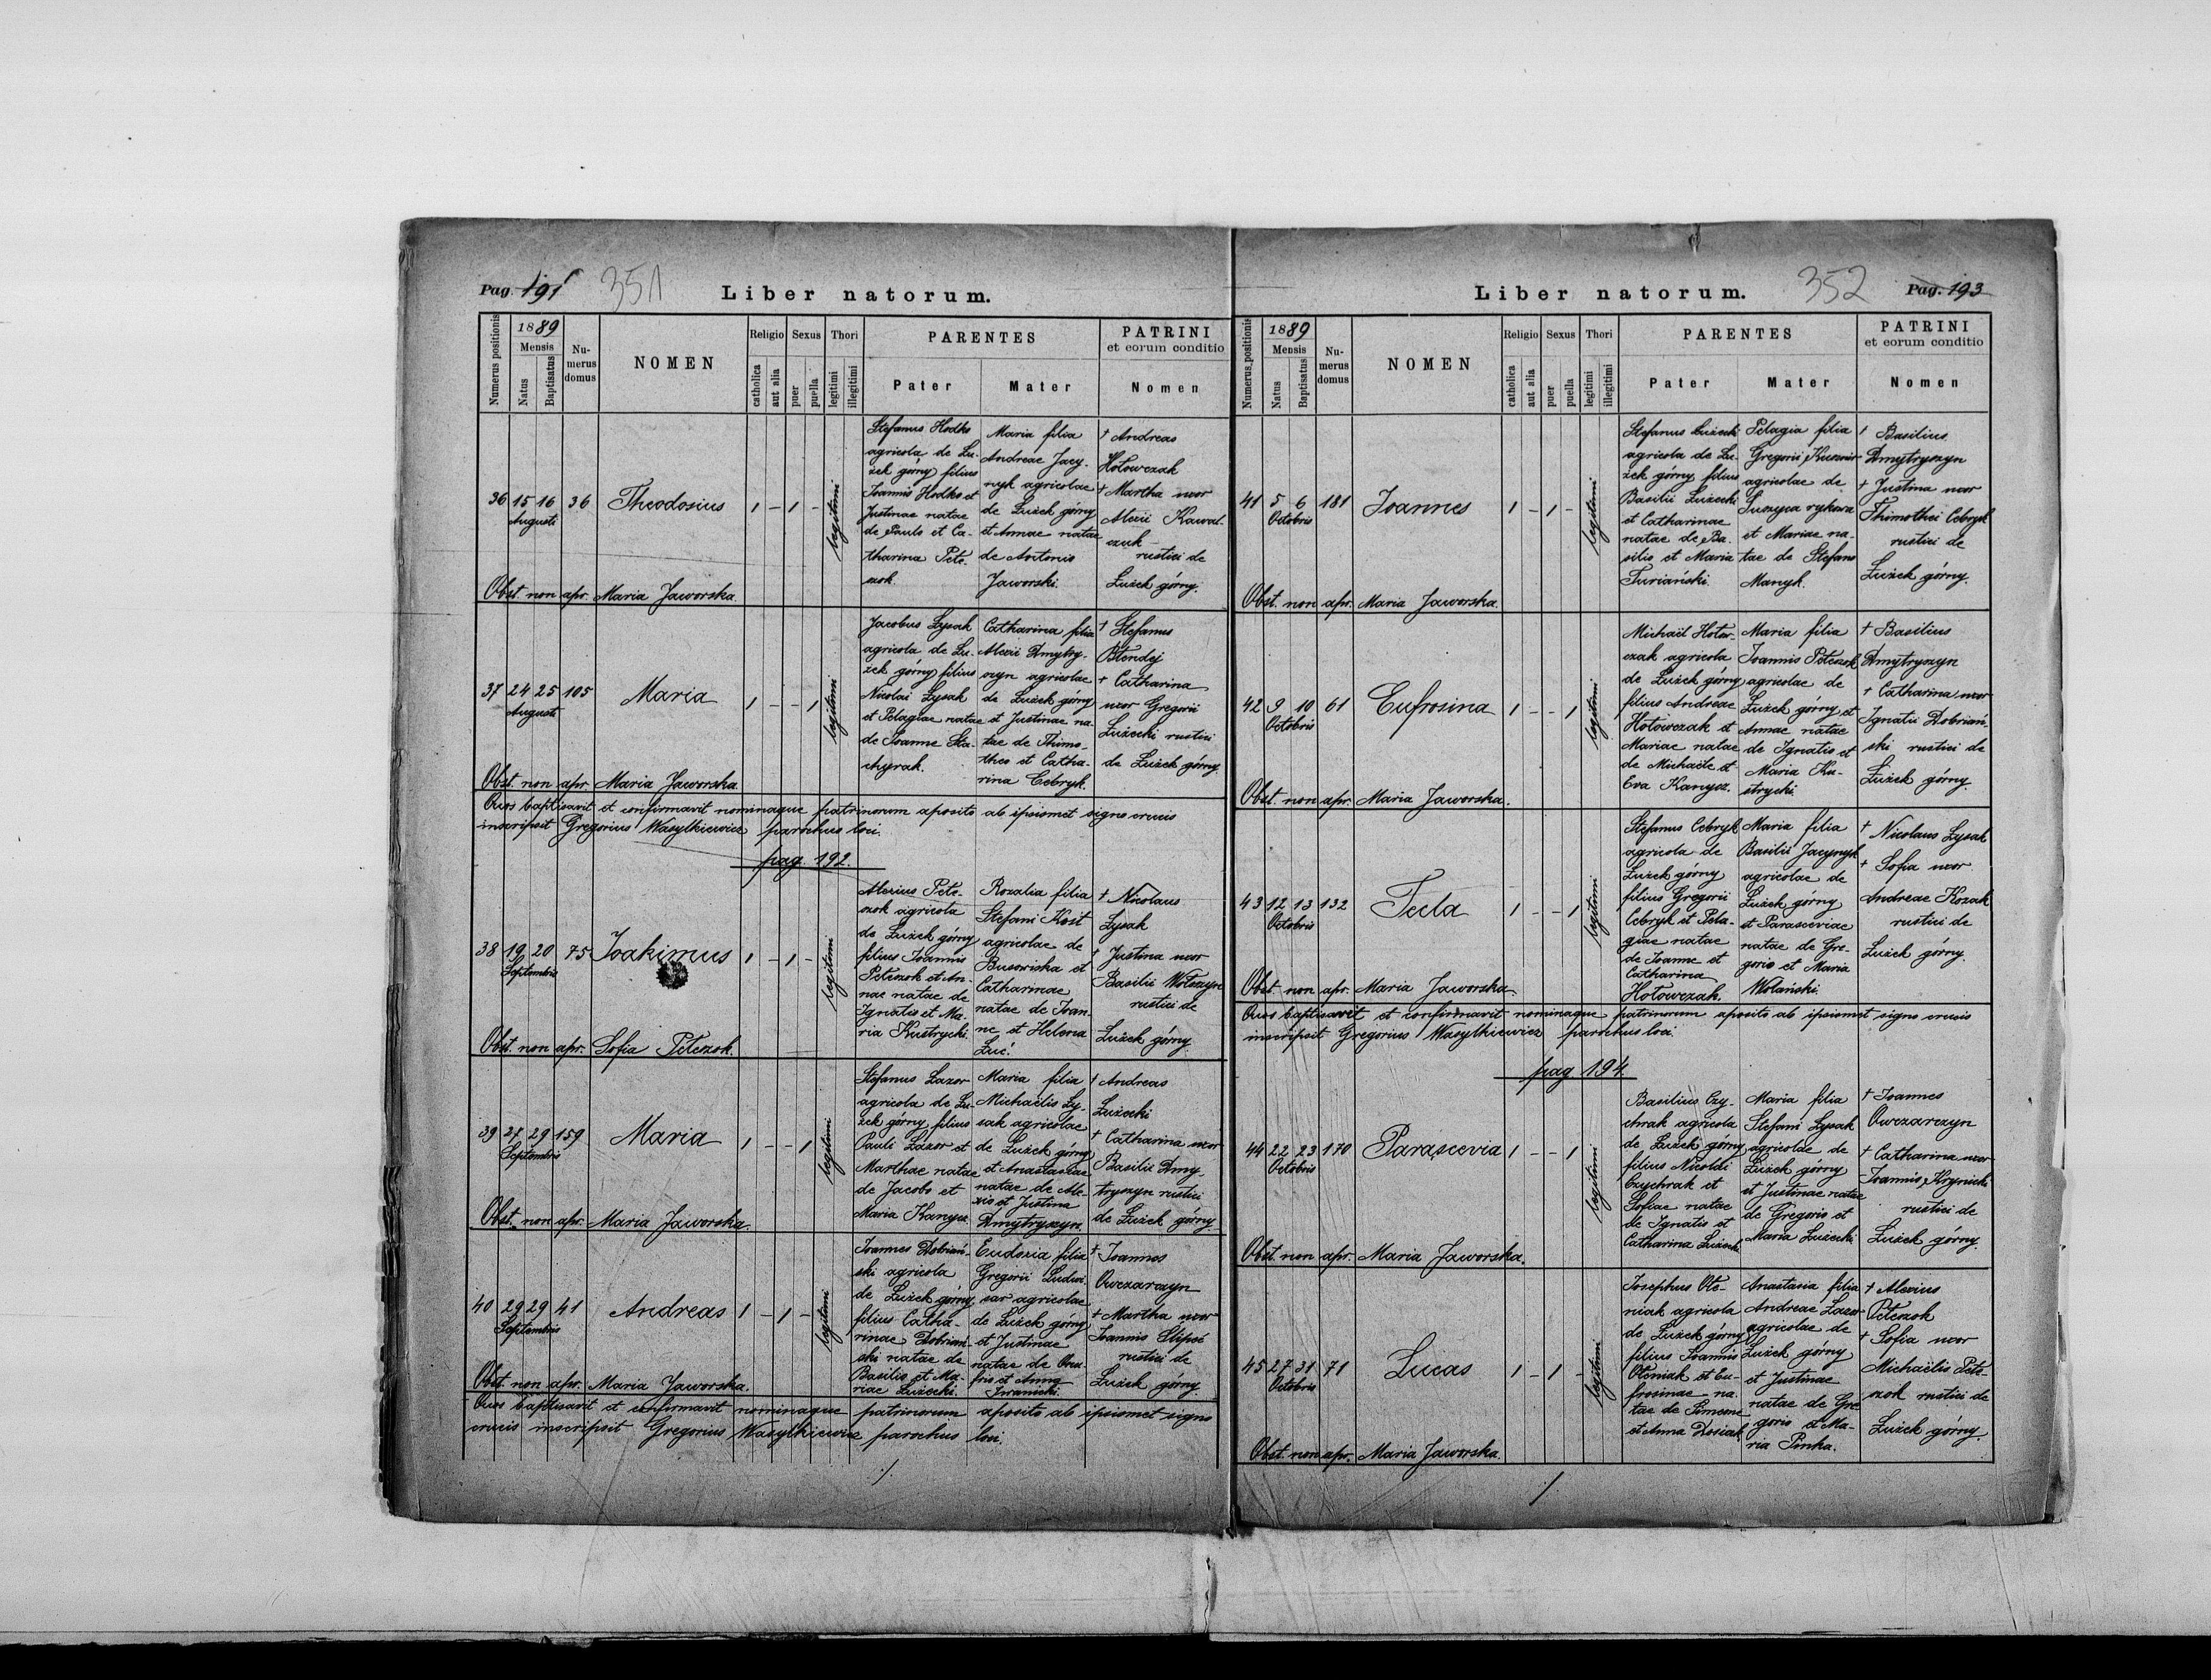 Pag. 191 351 Liber natorum.
Numerus positionis
1889
Mensis
Natus
Baptisatus
Numerus domus
NOMEN
Religio
catholica
aut alia
Sexus
puer
puella
Thori
legitimi
illegitimi
PARENTES
Pater
Mater
PATRINI
et eorum conditio
Nomen
36 15 16 36 Theodosius 1 - 1 - legitimi
Augusti
Stefanus Hodko
agricola de Łu-
żek górny filius
Joannis Hodko et
Justinae natae
de Paulo et Ca-
tharina Pete-
czok.
Maria filia
Andreae Jacy-
nyk agricolae
de Łużek górny
et Annae natae
de Antonio
Jaworski.
† Andreas
Hołowczak
† Martha uxor
Alexii Kawal-
czuk
rustici de
Łużek górny.
Obst. non apr. Maria Jaworska.
37 24 25 105 Maria 1 - - 1 legitimi
Augusti
Jacobus Łysak
agricola de Łu-
żek górny filius
Nicolai Łysak
et Pelagiae natae
de Joanne Sta-
chyrak.
Catharina filia
Alexii Dmytry-
szyn agricolae
de Łużek górny
et Justinae na-
tae de Thimo-
theo et Catha-
rina Cebryk.
† Stefanus
Błendej
† Catharina
uxor Gregorii
Łużecki rustici
de Łużek górny.
Obst. non apr. Maria Jaworska.
Quos baptisavit et confirmavit nominaque patrinorum aposito ab ipsismet signo crucis
inscripsit Gregorius Wasylkiewicz parochus loci.
pag 192.
38 19 20 75 Joakimus 1 - 1 - legitimi
Septembris
Alexius Pete-
czok agricola
de Łużek górny
filius Joannis
Peteczok et An-
nae natae de
Ignatio et Ma-
ria Kustrycki.
Rozalia filia
Stefani Kost
agricolae de
Busowiska et
Catharinae
natae de Joan-
ne et Helena
Żuć.
† Nicolaus
Łysak
† Justina uxor
Basilii Wołczyn
rustici de
Łużek górny.
Obst. non apr. Sofia Peteczok.
39 27 29 159 Maria 1 - - 1 legitimi
Septembris
Stefanus Łazor
agricola de Łu-
żek górny filius
Pauli Łazor et
Marthae natae
de Jacobo et
Maria Kanycz.
Maria filia
Michaëlis Ły-
sak agricolae
de Łużek górny
et Anastasiae
natae de Ale-
xio et Justina
Dmytryszyn.
† Andreas
Łużecki
† Catharina uxor
Basilii Dmy-
tryszyn rustici
de Łużek górny.
Obst. non apr. Maria Jaworska.
40 29 29 41 Andreas 1 - 1 - legitimi
Septembris
Joannes Dobriań-
ski agricola
de Łużek górny
filius Catha-
rinae Dobriań-
ski natae de
Basilio et Ma-
riae Łużecki.
Eudoxia filia
Gregorii Ludwi-
sar agricolae
de Łużek górny
et Justinae
natae de Onu-
frio et Anna
Iwanicki.
† Joannes
Owczarczyn
† Martha uxor
Joannis Slipeć
rustici de
Łużek górny.
Obst. non apr. Maria Jaworska.
Quos baptisavit et confirmavit nominaque patrinorum aposito ab ipsismet signo
crucis inscripsit Gregorius Wasylkiewicz parochus loci.
Liber natorum. 352 Pag. 193
Numerus positionis
1889
Mensis
Natus
Baptisatus
Numerus domus
NOMEN
Religio
catholica
aut alia
Sexus
puer
puella
Thori
legitimi
illegitimi
PARENTES
Pater
Mater
PATRINI
et eorum conditio
Nomen
41 5 6 181 Joannes 1 - 1 - legitimi
Octobris
Stefanus Łużecki
agricola de Łu-
żek górny filius
Basilii Łużecki
et Catharinae
natae de Ba-
silio et Maria
Turiański.
Pelagia filia
Gregorii
agricolae de
Łuszyca rykowa
et Mariae na-
tae de Stefano
Manyk.
† Basilius
Dmytryszyn
† Justina uxor
Thimothei Cebryk
rustici de
Łużek górny.
Obst. non apr. Maria Jaworska.
42 9 10 61 Eufrosina 1 - - 1 legitimi
Octobris
Michaël Hołow-
czak agricola
de Łużek górny
filius Andreae
Hołowczak et
Mariae natae
de Michaële et
Eva Kanycz.
Maria filia
Joannis Peteczok
agricolae de
Łużek górny et
Annae natae
de Ignatio et
Maria Ku-
strycki.
† Basilius
Dmytryszyn
† Catharina uxor
Ignatii Dobriań-
ski rustici de
Łużek górny.
Obst. non apr. Maria Jaworska.
43 12 13 132 Tecla 1 - - 1 legitimi
Octobris
Stefanus Cebryk
agricola de
Łużek górny
filius Gregorii
Cebryk et Pela-
giae natae
de Joanne et
Catharina
Hołowczak.
Maria filia
Basilii Jacynyk
agricolae de
Łużek górny
et Parasceviae
natae de Gre-
gorio et Maria
Wolański.
† Nicolaus Łysak
† Sofia uxor
Andreae Kozak
rustici de
Łużek górny.
Obst. non apr. Maria Jaworska.
Quos baptisavit et confirmavit nominaque patrinorum aposito ab ipsismet signo crucis
inscripsit Gregorius Wasylkiewicz parochus loci.
pag 194.
44 22 23 170 Parascevia 1 - - 1 legitimi
Octobris
Basilius Czy-
chrak agricola
de Łużek górny
filius Nicolai
Czychrak et
Sofiae natae
de Ignatio et
Catharina Łużecki
Maria filia
Stefani Łysak
agricolae de
Łużek górny
et Justinae natae
de Gregorio et
Maria Łużecki.
† Joannes
Owczarczyn
† Catharina uxor
Joannis Krynicki
rustici de
Łużek górny.
Obst. non apr. Maria Jaworska.
45 27 31 71 Lucas 1 - 1 - legitimi
Octobris
Josephus Ole-
niak agricola
de Łużek górny
filius Joannis
Oleniak et Eu-
frosinae na-
tae de Simeone
et Anna Dosiak.
Anastasia filia
Andreae Łazor
agricolae de
Łużek górny
et Justinae
natae de Gre-
gorio et Ma-
ria Pinka.
† Alexius
Peteczok
† Sofia uxor
Michaëlis Pete-
czok rustici de
Łużek górny.
Obst. non apr. Maria Jaworska.